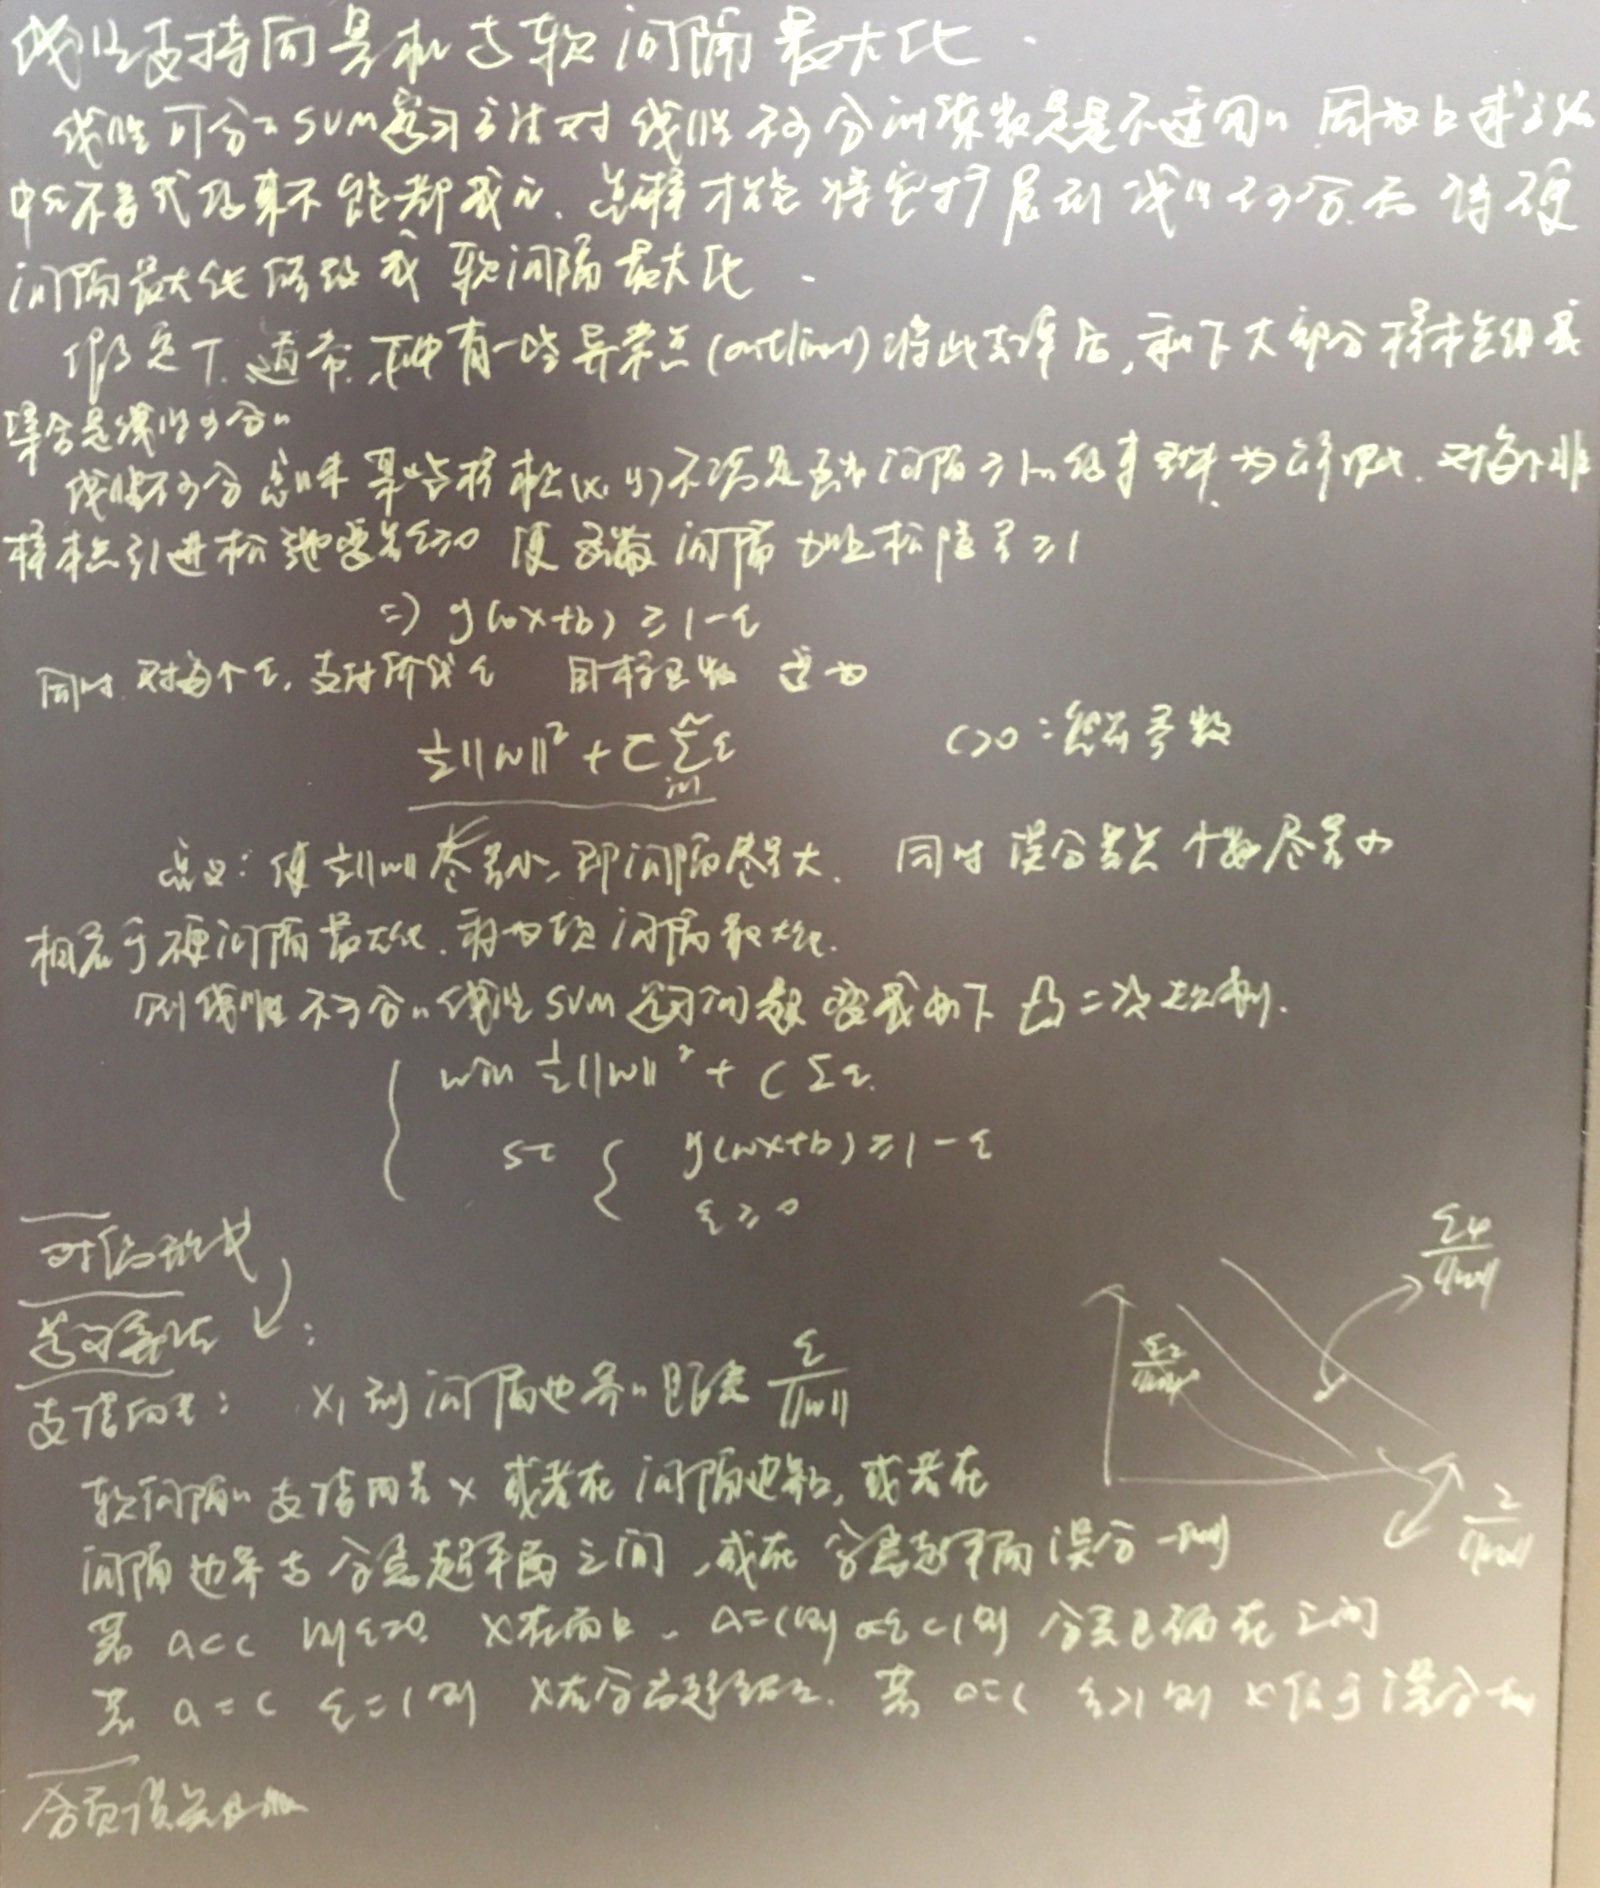 线性支持向量机与软间隔最大化.
线性可分的SVM学习方法对线性不可分训练数据是不适用的,因为上述方法
中的不等式约束不能都成立.怎样才能将它扩展到线性不可分.需将硬
间隔最大化修改成 软间隔最大化.
假定T.通常,T中有一些异常点(outlier)将此去掉后,剩下大部分样本点组成
集合是线性可分的
线性不可分意味某些样本点(x,y)不满足函数间隔≥1的约束 对每个
样本点引进松弛变量ξ≥0 使函数间隔加上松弛变量≥1
=> y(wx+b) ≥ 1-ξ
同时.对每个ξ,支付代价ξ 目标函数 变为
½||w||² + C Σ ξ C>0:惩罚参数
i=1
意义:使½||w||尽量小,即间隔尽量大. 同时误分类点个数尽量小
相应于硬间隔最大化.称为软间隔最大化.
则线性不可分的线性SVM学习问题变成如下凸二次规划.
min ½||w||² + C Σ ξ.
st { y(wx+b) ≥ 1-ξ
ξ ≥ 0
对偶形式
学习算法 :
支持向量: xi 到间隔边界的距离 ξ/||w||
软间隔的支持向量x或者在间隔边界上,或者在
间隔边界与分离超平面之间,或在分离超平面误分一侧
若 a<c 则ξ=0. x在面上. a=c则 0<ξ<1则 分类正确在之间
若 a=c ξ=1则 x在分离超平面上. 若 a=c ξ>1则 x位于误分一侧
合页损失函数
ξ4/||w||
ξ2/||w||
2/||w||